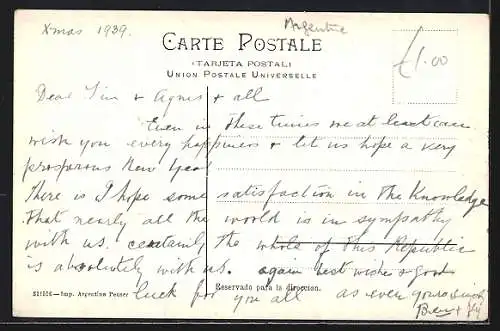 Xmas 1939.
Argentine
CARTE POSTALE
(TARJETA POSTAL)
UNION POSTALE UNIVERSELLE
£1.00
Dear Jim & Agnes & all
Even in these times we at least can
wish you every happiness & let us hope a very
prosperous New Year
There is I hope some satisfaction in the knowledge
that nearly all the world is in sympathy
with us. certainly the whole of this Republic
is absolutely with us. again best wishes & good
luck for you all as ever yours
Reservado para la direccion.
Imp. Argentina Peuser